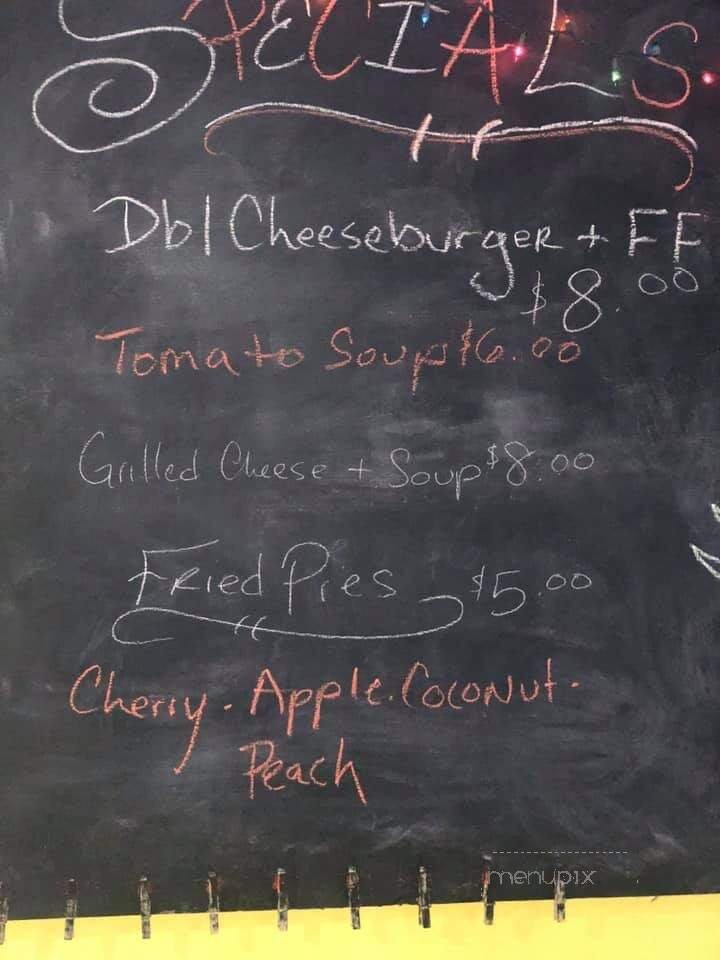 SPECIALS
Dbl Cheeseburger + FF
$8.00
Tomato Soup $6.00
Grilled Cheese + Soup $8.00
Fried Pies $5.00
Cherry. Apple. Coconut.
Peach
menupix